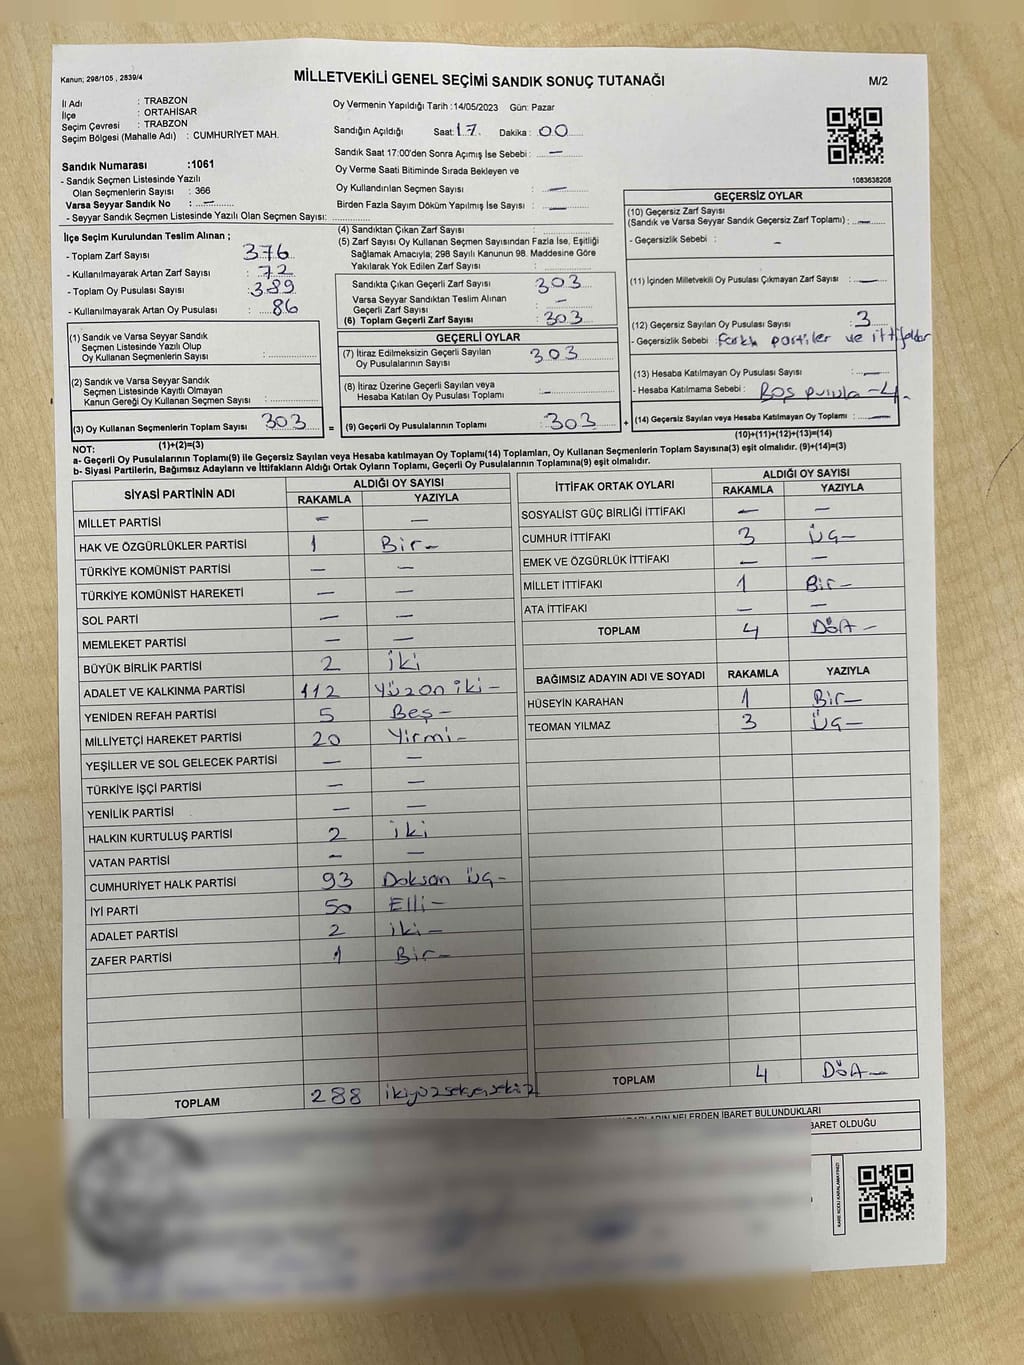 Kanun; 298/105 , 2839/4
MİLLETVEKİLİ GENEL SEÇİMİ SANDIK SONUÇ TUTANAĞI
M/2
İl Adı : TRABZON
İlçe : ORTAHİSAR
Seçim Çevresi : TRABZON
Seçim Bölgesi (Mahalle Adı) : CUMHURİYET MAH.
Sandık Numarası :1061
- Sandık Seçmen Listesinde Yazılı
Olan Seçmenlerin Sayısı : 366
Varsa Seyyar Sandık No : —
- Seyyar Sandık Seçmen Listesinde Yazılı Olan Seçmen Sayısı:
Oy Vermenin Yapıldığı Tarih :14/05/2023 Gün: Pazar
Sandığın Açıldığı Saat: 17 Dakika : 00
Sandık Saat 17:00'den Sonra Açımış İse Sebebi : —
Oy Verme Saati Bitiminde Sırada Bekleyen ve
Oy Kullandırılan Seçmen Sayısı : —
Birden Fazla Sayım Döküm Yapılmış İse Sayısı : —
1083638208
İlçe Seçim Kurulundan Teslim Alınan ;
- Toplam Zarf Sayısı : 376
- Kullanılmayarak Artan Zarf Sayısı : 72
- Toplam Oy Pusulası Sayısı : 389
- Kullanılmayarak Artan Oy Pusulası : 86
(1) Sandık ve Varsa Seyyar Sandık
Seçmen Listesinde Yazılı Olup
Oy Kullanan Seçmenlerin Sayısı :
(2) Sandık ve Varsa Seyyar Sandık
Seçmen Listesinde Kayıtlı Olmayan
Kanun Gereği Oy Kullanan Seçmen Sayısı :
(3) Oy Kullanan Seçmenlerin Toplam Sayısı 303
(1)+(2)=(3)
(4) Sandıktan Çıkan Zarf Sayısı :
(5) Zarf Sayısı Oy Kullanan Seçmen Sayısından Fazla İse, Eşitliği
Sağlamak Amacıyla; 298 Sayılı Kanunun 98. Maddesine Göre
Yakılarak Yok Edilen Zarf Sayısı :
Sandıkta Çıkan Geçerli Zarf Sayısı : 303
Varsa Seyyar Sandıktan Teslim Alınan
Geçerli Zarf Sayısı : —
(6) Toplam Geçerli Zarf Sayısı : 303
GEÇERLİ OYLAR
(7) İtiraz Edilmeksizin Geçerli Sayılan
Oy Pusulalarının Sayısı : 303
(8) İtiraz Üzerine Geçerli Sayılan veya
Hesaba Katılan Oy Pusulası Toplamı : —
= (9) Geçerli Oy Pusulalarının Toplamı : 303 +
GEÇERSİZ OYLAR
(10) Geçersiz Zarf Sayısı
(Sandık ve Varsa Seyyar Sandık Geçersiz Zarf Toplamı) : —
- Geçersizlik Sebebi : -
(11) İçinden Milletvekili Oy Pusulası Çıkmayan Zarf Sayısı : —
(12) Geçersiz Sayılan Oy Pusulası Sayısı : 3
- Geçersizlik Sebebi : Farklı partiler ve ittifaklar
(13) Hesaba Katılmayan Oy Pusulası Sayısı : —
- Hesaba Katılmama Sebebi : Boş pusula - 4
(14) Geçersiz Sayılan veya Hesaba Katılmayan Oy Toplamı : —
(10)+(11)+(12)+(13)=(14)
NOT:
a- Geçerli Oy Pusulalarının Toplamı(9) ile Geçersiz Sayılan veya Hesaba katılmayan Oy Toplamı(14) Toplamları, Oy Kullanan Seçmenlerin Toplam Sayısına(3) eşit olmalıdır. (9)+(14)=(3)
b- Siyasi Partilerin, Bağımsız Adayların ve İttifakların Aldığı Ortak Oyların Toplamı, Geçerli Oy Pusulalarının Toplamına(9) eşit olmalıdır.
SİYASİ PARTİNİN ADI ALDIĞI OY SAYISI
RAKAMLA YAZIYLA
MİLLET PARTİSİ — —
HAK VE ÖZGÜRLÜKLER PARTİSİ 1 Bir-
TÜRKİYE KOMÜNİST PARTİSİ — —
TÜRKİYE KOMÜNİST HAREKETİ — —
SOL PARTİ — —
MEMLEKET PARTİSİ — —
BÜYÜK BİRLİK PARTİSİ 2 İki
ADALET VE KALKINMA PARTİSİ 112 Yüzon iki-
YENİDEN REFAH PARTİSİ 5 Beş-
MİLLİYETÇİ HAREKET PARTİSİ 20 Yirmi-
YEŞİLLER VE SOL GELECEK PARTİSİ — —
TÜRKİYE İŞÇİ PARTİSİ — —
YENİLİK PARTİSİ — —
HALKIN KURTULUŞ PARTİSİ 2 iki
VATAN PARTİSİ — —
CUMHURİYET HALK PARTİSİ 93 Doksan üç-
İYİ PARTİ 50 Elli-
ADALET PARTİSİ 2 iki-
ZAFER PARTİSİ 1 Bir-
TOPLAM 288 ikiyüzseksensekiz
İTTİFAK ORTAK OYLARI ALDIĞI OY SAYISI
RAKAMLA YAZIYLA
SOSYALİST GÜÇ BİRLİĞİ İTTİFAKI — —
CUMHUR İTTİFAKI 3 Üç-
EMEK VE ÖZGÜRLÜK İTTİFAKI — —
MİLLET İTTİFAKI 1 Bir-
ATA İTTİFAKI — —
TOPLAM 4 Dört-
BAĞIMSIZ ADAYIN ADI VE SOYADI RAKAMLA YAZIYLA
HÜSEYİN KARAHAN 1 Bir-
TEOMAN YILMAZ 3 Üç-
TOPLAM 4 Dört-
NELERDEN İBARET BULUNDUKLARI
BARET OLDUĞU